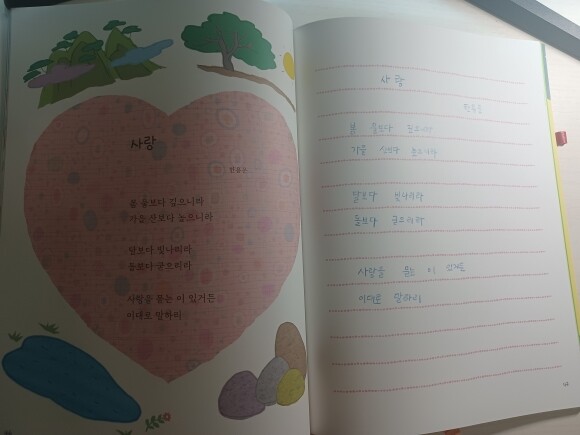 사랑
한용운
봄 물보다 깊으니라
가을 산보다 높으니라
달보다 빛나리라
돌보다 굳으리라
사랑을 묻는 이 있거든
이대로 말하리
사랑
한용운
봄 물보다
가을 산보다 높으니라
달보다 빛나리라
돌보다 굳으리라
사랑을 묻는 이 있거든
이대로 말하리